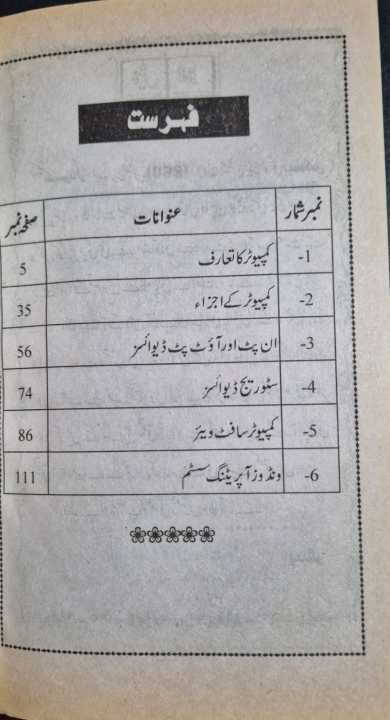 فہرست
نمبر شمار عنوانات صفحہ نمبر
-1 کمپیوٹر کا تعارف 5
-2 کمپیوٹر کے اجزاء 35
-3 ان پٹ اور آؤٹ پٹ ڈیوائسز 56
-4 سٹوریج ڈیوائسز 74
-5 کمپیوٹر سافٹ ویئر 86
-6 ونڈوز آپریٹنگ سسٹم 111